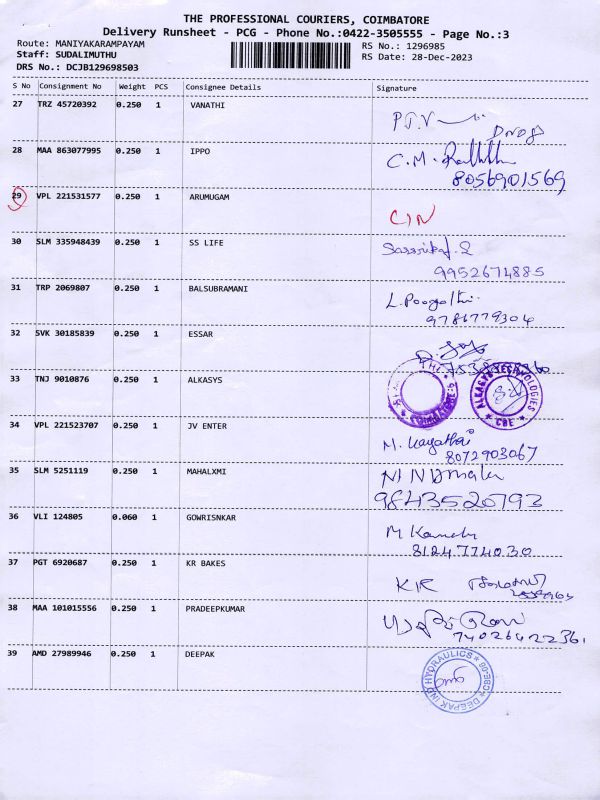 THE PROFESSIONAL COURIERS, COIMBATORE
Delivery Runsheet - PCG - Phone No.:0422-3505555 - Page No.:3
Route: MANIYAKARAMPAYAM
RS No.: 1296985
Staff: SUDALIMUTHU
RS Date: 28-Dec-2023
DRS No.: DCJB129698503
S No Consignment No Weight PCS Consignee Details Signature
27 TRZ 45720392 0.250 1 VANATHI
28 MAA 863077995 0.250 1 IPPO
C.M.
8056901569
29 VPL 221531577 0.250 1 ARUMUGAM
30 SLM 335948439 0.250 1 SS LIFE
9952674885
31 TRP 2069807 0.250 1 BALSUBRAMANI
9786779304
32 SVK 30185839 0.250 1 ESSAR
33 TNJ 9010876 0.250 1 ALKASYS
ALKASYS TECHNOLOGIES
CBE
34 VPL 221523707 0.250 1 JV ENTER
8072903067
35 SLM 5251119 0.250 1 MAHALXMI
9843520793
36 VLI 124805 0.060 1 GOWRISNKAR
8124774030
37 PGT 6920687 0.250 1 KR BAKES
KR
38 MAA 101015556 0.250 1 PRADEEPKUMAR
39 AMD 27989946 0.250 1 DEEPAK
DEEPAK IND HYDRAULICS